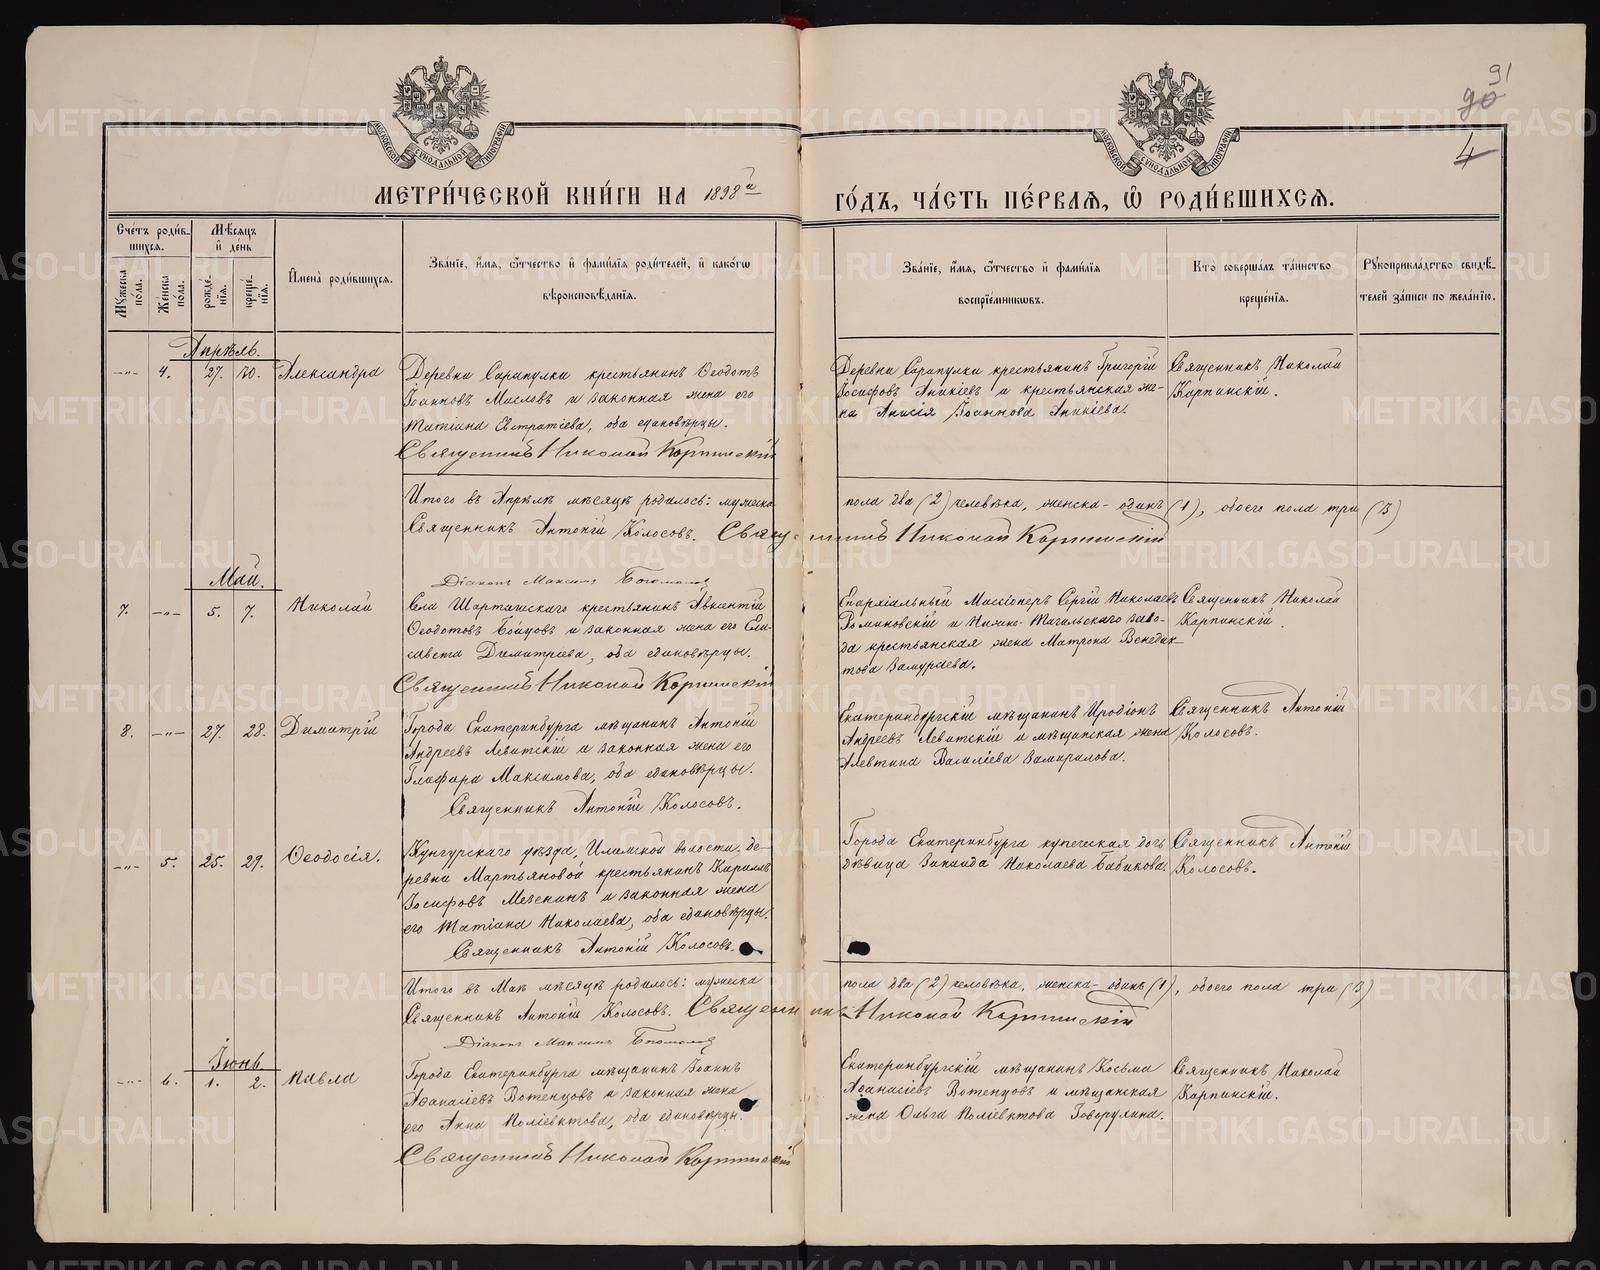 91
90
4
МОСКОВСКОЙ СУНОДАЛЬНОЙ ТИПОГРАФІИ
МОСКОВСКОЙ СУНОДАЛЬНОЙ ТИПОГРАФІИ
МЕТРИ́ЧЕСКОЙ КНИ́ГИ НА 1898й ГО́ДЪ, ЧА́СТЬ ПЕ́РВАЯ, Ѡ РОДИ́ВШИХСЯ.
Сче́тъ роди́в-
шихся.
Мѣ́сяцъ
и де́нь
Мужеска по́ла.
Же́нска по́ла.
рожде́-
нія.
креще́-
нія.
Имена̀ роди́вшихся.
Зва́ніе, и́мя, ѻ́тчество и фами́лія роди́телей, и како́гѡ
вѣроисповѣ́данія.
Зва́ніе, и́мя, ѻ́тчество и фами́лія
воспріе́мниковъ.
Кто̀ соверша́лъ та́инство
креще́нія.
Рукоприкла́дство свидѣ́-
телей за́писи по жела́нію.
Апрѣль.
-"- 4. 27. 30. Александра
Деревни Сарапулки крестьянинъ Ѳеодотъ
Іоанновъ Масловъ и законная жена его
Татіана Евстратіева, оба единовѣрцы.
Священникъ Николай Карпинскій
Деревни Сарапулки крестьянинъ Григорій
Іосифовъ Аникіевъ и крестьянская же-
на Анисія Іоаннова Аникіева.
Священникъ Николай
Карпинскій.
Итого въ Апрѣлѣ мѣсяцѣ родилось: мужска пола два (2) человѣка, женска - одинъ (1), обоего пола три (3)
Священникъ Антоній Колосовъ. Священникъ Николай Карпинскій
Діаконъ Максимъ Богомолов
Май.
7. -"- 5. 7. Николай
Села Шарташскаго крестьянинъ Авксентій
Ѳеодотовъ Бойцовъ и законная жена его Ели-
савета Димитріева, оба единовѣрцы.
Священникъ Николай Карпинскій
Епархіальный Миссіонеръ Сергій Николаевъ
Роминовскій и Нижне-Тагильскаго заво-
да крестьянская жена Матрона Венедик-
това Замураева.
Священникъ Николай
Карпинскій
8. -"- 27. 28. Димитрій
Города Екатеринбурга мѣщанинъ Антоній
Андреевъ Левитскій и законная жена его
Глафира Максимова, оба единовѣрцы.
Священникъ Антоній Колосовъ.
Екатеринбургскій мѣщанинъ Иродіонъ
Андреевъ Левитскій и мѣщанская жена
Алевтина Василіева Замиралова.
Священникъ Антоній
Колосовъ.
-"- 5. 25. 29. Ѳеодосія.
Кунгурскаго уѣзда, Илимской волости, де-
ревни Мартьяновой крестьянинъ Кириллъ
Іосифовъ Мезенинъ и законная жена
его Татіана Николаева, оба единовѣрцы.
Священникъ Антоній Колосовъ.
Города Екатеринбурга купеческая дочь
дѣвица Зинаида Николаева Бабикова.
Священникъ Антоній
Колосовъ.
Итого въ Маѣ мѣсяцѣ родилось: мужска пола два (2) человѣка, женска - одинъ (1), обоего пола три (3)
Священникъ Антоній Колосовъ. Священникъ Николай Карпинскій
Діаконъ Максимъ Богомолов
Іюнь.
-"- 6. 1. 2. Павла
Города Екатеринбурга мѣщанинъ Іоаннъ
Аѳанасіевъ Вотенцовъ и законная жена
его Анна Поліевктова, оба единовѣрцы.
Священникъ Николай Карпинскій
Екатеринбургскій мѣщанинъ Косьма
Аѳанасіевъ Вотенцовъ и мѣщанская
жена Ольга Поліевктова Говорухина.
Священникъ Николай
Карпинскій.
METRIKI.GASO-URAL.RU